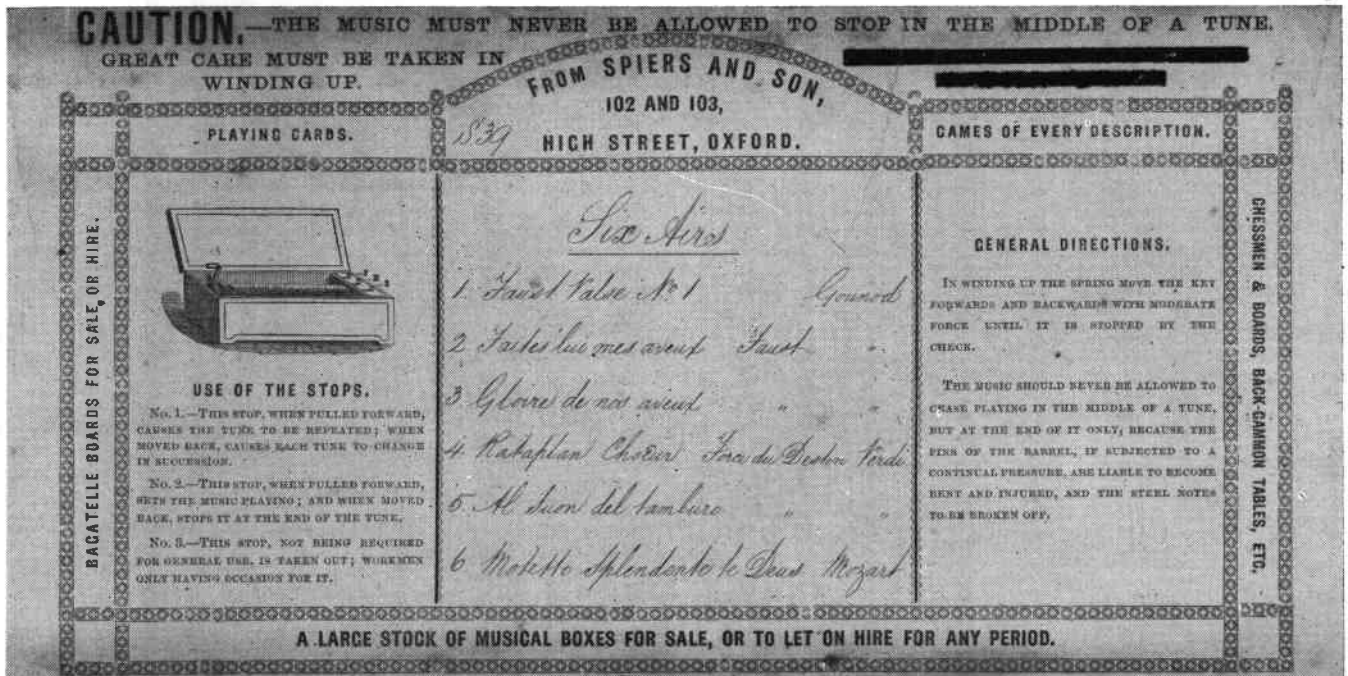 CAUTION.—THE MUSIC MUST NEVER BE ALLOWED TO STOP IN THE MIDDLE OF A TUNE.
GREAT CARE MUST BE TAKEN IN
WINDING UP.
FROM SPIERS AND SON,
102 AND 103,
HIGH STREET, OXFORD.
PLAYING CARDS.
GAMES OF EVERY DESCRIPTION.
BAGATELLE BOARDS FOR SALE, OR HIRE.
USE OF THE STOPS.
No. 1.—THIS STOP, WHEN PULLED FORWARD,
CAUSES THE TUNE TO BE REPEATED; WHEN
MOVED BACK, CAUSES EACH TUNE TO CHANGE
IN SUCCESSION.
No. 2.—THIS STOP, WHEN PULLED FORWARD,
SETS THE MUSIC PLAYING; AND WHEN MOVED
BACK, STOPS IT AT THE END OF THE TUNE.
No. 3.—THIS STOP, NOT BEING REQUIRED
FOR GENERAL USE, IS TAKEN OUT; WORKMEN
ONLY HAVING OCCASION FOR IT.
Six Airs
1. Faust Valse No 1 Gounod
2 Faites lui mes aveux Faust "
3 Gloire de nos aieux " "
4. Rataplan Choeur Force du Destin Verdi
5 Al Suon del tamburo " "
6 Motetto Splendente te Deus Mozart
GENERAL DIRECTIONS.
IN WINDING UP THE SPRING MOVE THE KEY
FORWARDS AND BACKWARDS WITH MODERATE
FORCE UNTIL IT IS STOPPED BY THE
CHECK.
THE MUSIC SHOULD NEVER BE ALLOWED TO
CEASE PLAYING IN THE MIDDLE OF A TUNE,
BUT AT THE END OF IT ONLY, BECAUSE THE
PINS OF THE BARREL, IF SUBJECTED TO A
CONTINUAL PRESSURE, ARE LIABLE TO BECOME
BENT AND INJURED, AND THE STEEL NOTES
TO BE BROKEN OFF.
CHESSMEN & BOARDS, BACK-GAMMON TABLES, ETC.
A LARGE STOCK OF MUSICAL BOXES FOR SALE, OR TO LET ON HIRE FOR ANY PERIOD.